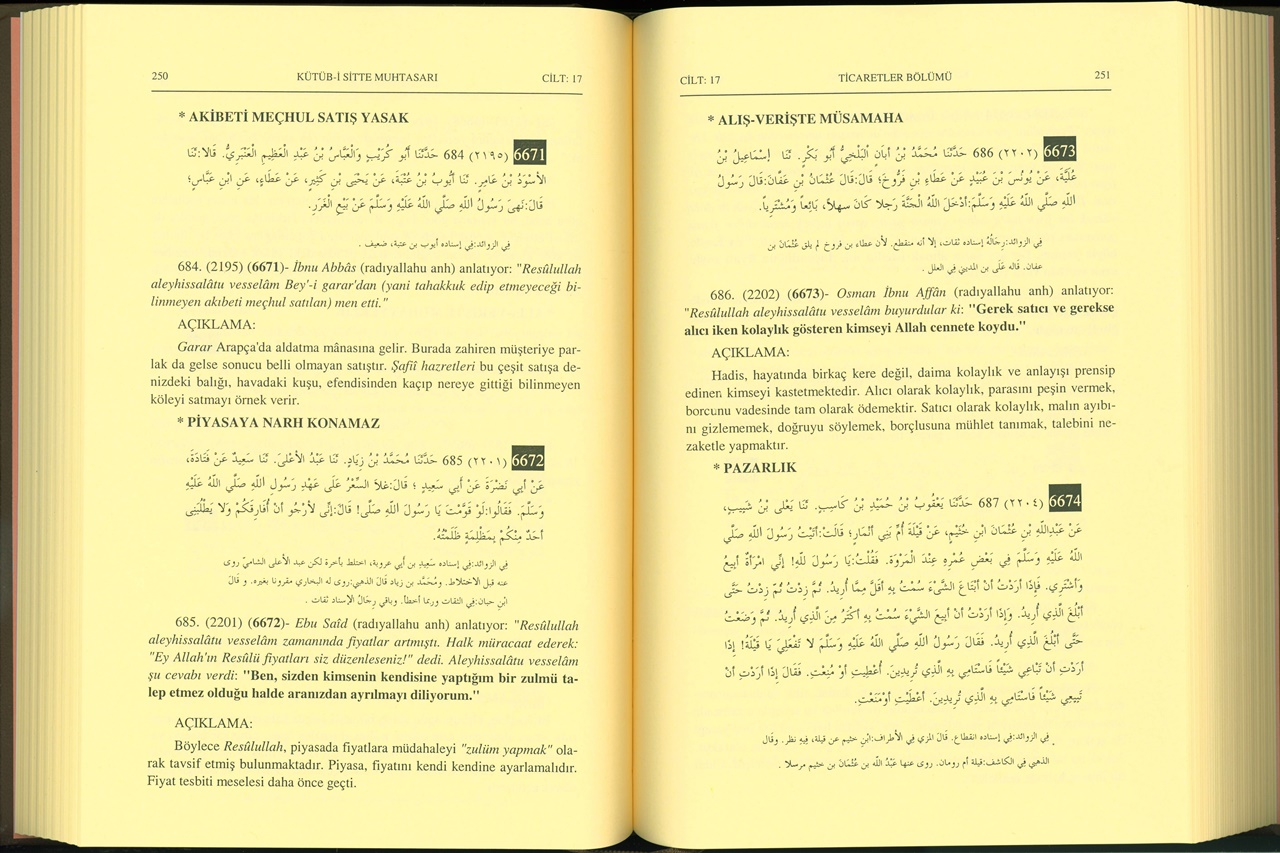 250 KÜTÜB-İ SİTTE MUHTASARI CİLT: 17
* AKİBETİ MEÇHUL SATIŞ YASAK
6671 (٢١٩٥) 684 حَدَّثَنَا أَبُو كُرَيْبٍ وَالْعَبَّاسُ بْنُ عَبْدِ الْعَظِيمِ الْعَنْبَرِيُّ. قَالَا:ثَنَا
الأَسْوَدُ بْنُ عَامِرٍ. ثَنَا أَيُّوبُ بْنُ عُتْبَةَ، عَنْ يَحْيَى بْنِ كَثِيرٍ، عَنْ عَطَاءٍ، عَنِ ابْنِ عَبَّاسٍ؛
قَالَ:نَهَى رَسُولُ اللهِ صَلَّي اللهُ عَلَيْهِ وَسَلَّمَ عَنْ بَيْعِ الْغَرَرِ.
فِي الزوائد:فِي إسناده أيوب بن عتبة، ضعيف .
684. (2195) (6671)- İbnu Abbâs (radıyallahu anh) anlatıyor: "Resûlullah
aleyhissalâtu vesselâm Bey'-i garar'dan (yani tahakkuk edip etmeyeceği bi-
linmeyen akıbeti meçhul satılan) men etti."
AÇIKLAMA:
Garar Arapça'da aldatma mânasına gelir. Burada zahiren müşteriye par-
lak da gelse sonucu belli olmayan satıştır. Şafiî hazretleri bu çeşit satışa de-
nizdeki balığı, havadaki kuşu, efendisinden kaçıp nereye gittiği bilinmeyen
köleyi satmayı örnek verir.
* PİYASAYA NARH KONAMAZ
6672 (٢٢٠١) 685 حَدَّثَنَا مُحَمَّدُ بْنُ زِيَادٍ. ثَنَا عَبْدُ الأَعْلَىَ. ثَنَا سَعِيدٌ عَنْ قَتَادَةَ،
عَنْ أَبِي نَضْرَةَ عَنْ أَبِي سَعِيدٍ ؛ قَالَ:غَلاَ السِّعْرُ عَلَى عَهْدِ رَسُولِ اللهِ صَلَّي اللهُ عَلَيْهِ
وَسَلَّمَ. فَقَالُوا:لَوْ قَوَّمْتَ يَا رَسُولَ اللهِ صَلَّى! قَالَ:إِنِّى لَأَرْجُو أَنْ أُفَارِقَكُمْ وَلَا يَطْلُبَنِى
أَحَدٌ مِنْكُمْ بِمَظْلِمَةٍ ظَلَمْتُهُ.
فِي الزوائد:فِي إسناده سَعِيدِ بن أبي عروبة، اختلط بأخرة لكن عبد الأعلى الشاميّ روى
عنه قبل الاختلاط. ومُحَمَّد بن زياد قَالَ الذهبي:روى له البخاري مقرونا بغيره. و قَالَ
ابْنِ حبان:فِي الثقات وربما أخطأ. وباقي رِجَالُ الإسناد ثقات .
685. (2201) (6672)- Ebu Saîd (radıyallahu anh) anlatıyor: "Resûlullah
aleyhissalâtu vesselâm zamanında fiyatlar artmıştı. Halk müracaat ederek:
"Ey Allah'ın Resûlü fiyatları siz düzenleseniz!" dedi. Aleyhissalâtu vesselâm
şu cevabı verdi: "Ben, sizden kimsenin kendisine yaptığım bir zulmü ta-
lep etmez olduğu halde aranızdan ayrılmayı diliyorum."
AÇIKLAMA:
Böylece Resûlullah, piyasada fiyatlara müdahaleyi "zulüm yapmak" ola-
rak tavsif etmiş bulunmaktadır. Piyasa, fiyatını kendi kendine ayarlamalıdır.
Fiyat tesbiti meselesi daha önce geçti.
CİLT: 17 TİCARETLER BÖLÜMÜ 251
* ALIŞ-VERİŞTE MÜSAMAHA
6673 (٢٢٠٢) 686 حَدَّثَنَا مُحَمَّدُ بْنُ أَبَانٍ الْبَلْخِيُّ أَبُو بَكْرٍ. ثَنَا إِسْمَاعِيلُ بْنُ
عُلَيَّةَ، عَنْ يُونُسَ بْنَ عُبَيْدٍ عَنْ عَطَاءِ بْنِ فَرُّوخَ؛ قَالَ:قَالَ عُثْمَانُ بْنِ عَفَّانَ:قَالَ رَسُولُ
اللهِ صَلَّي اللهُ عَلَيْهِ وَسَلَّمَ:أَدْخَلَ اللهُ الْجَنَّةَ رَجلا كَانَ سهلاً، بَائِعاً وَمُشْتَرِياً.
فِي الزوائد:رِجَالُهُ إسناده ثقات، إلا أنه منقطع. لأن عطاء بن فروخ لم يلق عُثْمَانَ بن
عفان. قَاله عَلَى بن المديني فِي العلل .
686. (2202) (6673)- Osman İbnu Affân (radıyallahu anh) anlatıyor:
"Resûlullah aleyhissalâtu vesselâm buyurdular ki: "Gerek satıcı ve gerekse
alıcı iken kolaylık gösteren kimseyi Allah cennete koydu."
AÇIKLAMA:
Hadis, hayatında birkaç kere değil, daima kolaylık ve anlayışı prensip
edinen kimseyi kastetmektedir. Alıcı olarak kolaylık, parasını peşin vermek,
borcunu vadesinde tam olarak ödemektir. Satıcı olarak kolaylık, malın ayıbı-
nı gizlememek, doğruyu söylemek, borçlusuna mühlet tanımak, talebini ne-
zaketle yapmaktır.
* PAZARLIK
6674 (٢٢٠٤) 687 حَدَّثَنَا يَعْقُوبُ بْنُ حُمَيْدِ بْنِ كَاسِبٍ. ثَنَا يَعْلَى بْنُ شَبِيبٍ،
عَنْ عَبْدِاللهِ بْنِ عُثْمَانَ ابْنِ خُثَيْمٍ، عَنْ قَيْلَةَ أُمِّ بَنِي أَنْمَارٍ؛ قَالَتْ:أَتَيْتُ رَسُولَ اللهِ صَلَّي
اللهُ عَلَيْهِ وَسَلَّمَ فِي بَعْضِ عُمْرِهِ عِنْدَ الْمَرْوَةِ. فَقُلْتُ:يَا رَسُولَ للهِ! إِنِّي امْرَأَةٌ أَبِيعُ
وَأَشْتَرِي. فَإِذَا أَرَدْتُ أَنْ أَبْتَاعَ الشَّيْءَ سُمْتُ بِهِ أَقَلَّ مِمَّا أُرِيدُ. ثُمَّ زِدْتُ ثُمّ زِدْتُ حَتَّى
أَبْلُغَ الَّذِي أُرِيدُ. وَإِذَا أَرَدْتُ أَنْ أَبِيعَ الشَّيْءَ سُمْتُ بِهِ أَكْثَرُ مِنَ الَّذِي أُرِيدُ. ثُمَّ وَضَعْتُ
حَتَّى أَبْلُغَ الَّذِي أُرِيدُ. فَقَالَ رَسُولُ اللهِ صَلَّي اللهُ عَلَيْهِ وَسَلَّمَ لَا تَفْعَلِيَ يَا قَيْلَةُ! إِذَا
أَرَدْتِ أَنْ تَبْتَاعِي شَيْئاً فَاسْتَامِي بِهِ الَّذِي تُرِيدِينَ. أُعْطِيتِ أَوْ مُنِعْتِ. فَقَالَ إِذَا أَرَدْتِ أَنْ
تَبِيعِي شَيْئاً فَاسْتَامِي بِهِ الَّذِي تُرِيدِينَ. أَعْطَيْتِ أَوْمَنَعْتِ.
فِي الزوائد:فِي إسناده انقطاع. قَالَ المزي فِي الأطراف:ابْنِ خثيم عن قيلة، فِيهِ نظر. وقَال
الذهبي فِي الكاشف:قيلة أم رومان. روى عنها عَبْدُ اللَّهِ بن عُثْمَانَ بن خثيم مرسلا .